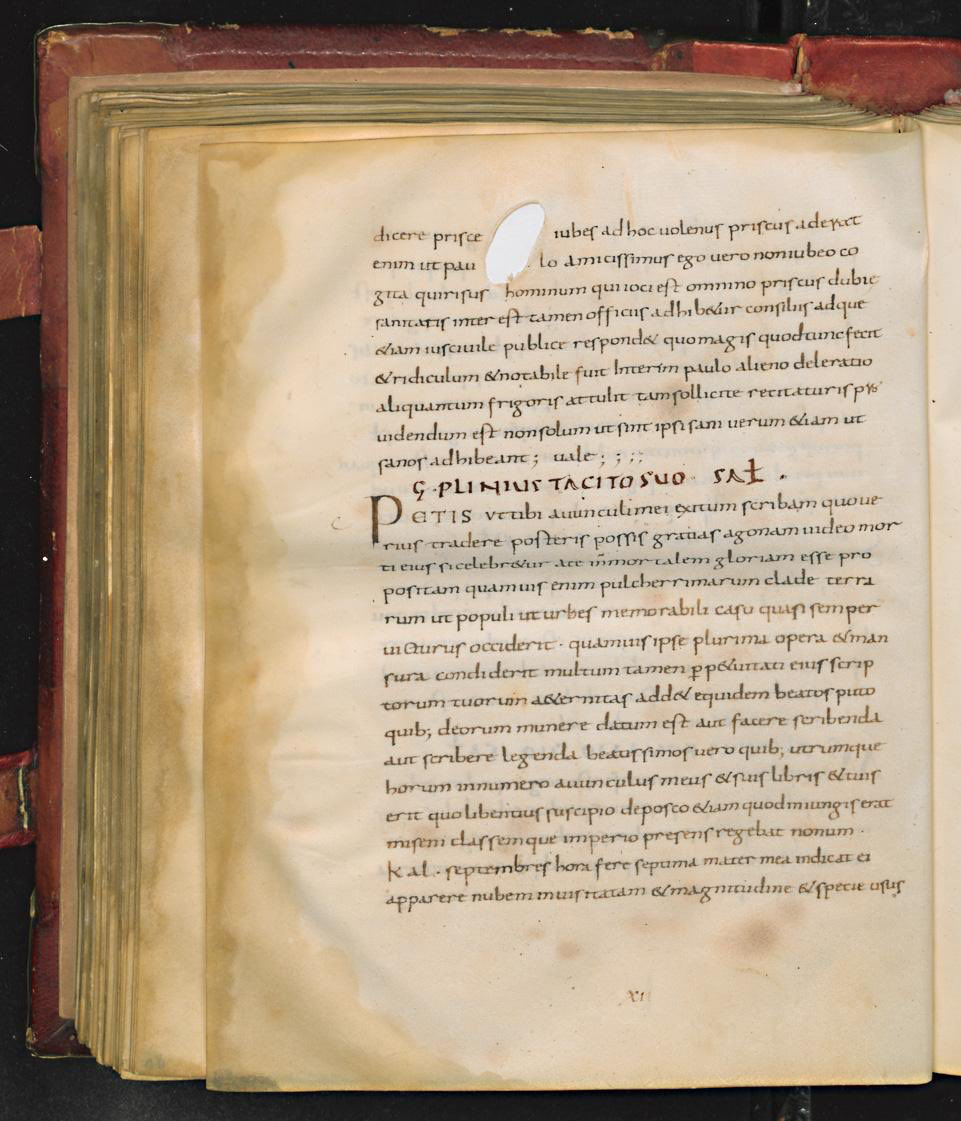 dicere prisce iubes ad hoc uolenus priscus aderat
enim ut pau lo amicissimus ego uero non iubeo co
gita quirisus hominum qui ioci est omnino priscus dubie
sanitatis inter est tamen officiis adhib&ur consiliis adque
&iam ius ciuile publice respond& quo magis quod tunc fecit
& ridiculum & notabile fuit Interim paulo alieno deleratio
aliquantum frigoris attulit tam sollicite recitaturis
uidendum est non solum ut sint ipsi sani uerum &iam ut
sanos adhibeant; uale; ; ;;
Ç·PLINIUS TACITO SUO SAŁ .
PETIS vt tibi auunculi mei exitum scribam quo ue
rius tradere posteris possis gratias ago nam uideo mor
ti eius si celebr&ur ate inmortalem gloriam esse pro
positam quamuis enim pulcherrimarum clade terra
rum ut populi ut urbes memorabili casu quasi semper
uicturus occiderit · quamuis ipse plurima opera & man
sura condiderit multum tamen ꝑp&uitati eius scrip
torum tuorum a&ernitas add& equidem beatos puto
quib; deorum munere datum est aut facere scribenda
aut scribere legenda beatissimos uero quib; utrumque
horum in numero auunculus meus & suis libris & tuis
erit quo libentius suscipio deposco &iam quod iniungis erat
miseni classemque imperio presens regebat nonum ·
Kal · septembres hora fere septima mater mea indicat ei
apparere nubem inuisitatam & magnitudine & specie usus
XI